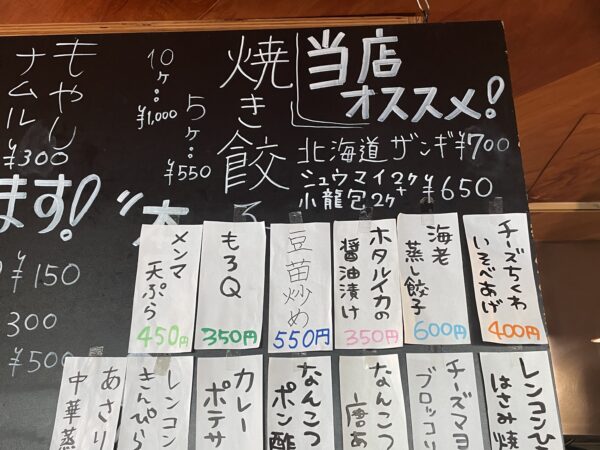 当店
オススメ!
北海道 ザンギ ¥700
シュウマイ2ケ+
小龍包2ケ
¥650
焼き餃子
5ケ:
¥550
10ケ:
¥1,000
もやし
ナムル
¥300
ます!
¥150
300
¥500
チーズちくわ
いそべあげ
400円
海老
蒸し餃子
600円
ホタルイカの
醤油漬け
350円
豆苗炒め
550円
もろQ
350円
メンマ
天ぷら
450円
レンコンひ
はさみ焼
チーズマヨ
ブロッコリ
なんこつ
唐あ
なんこつ
ポン酢
カレー
ポテサ
レンコン
きんぴら
あさり
中華蒸